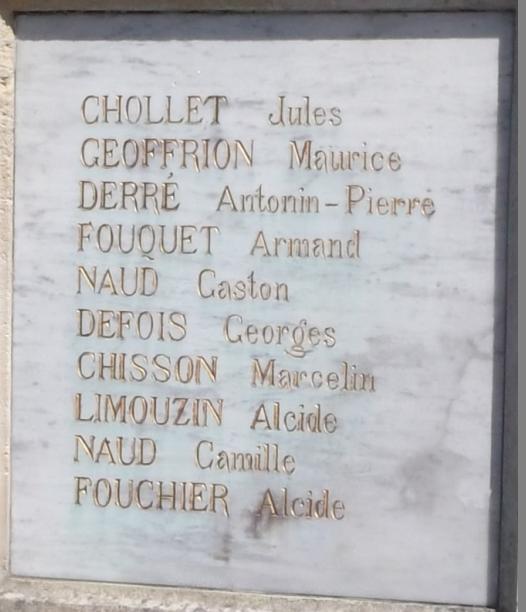 CHOLLET Jules
GEOFFRION Maurice
DERRÉ Antonin-Pierre
FOUQUET Armand
NAUD Gaston
DEFOIS Georges
CHISSON Marcelin
LIMOUZIN Alcide
NAUD Camille
FOUCHIER Alcide